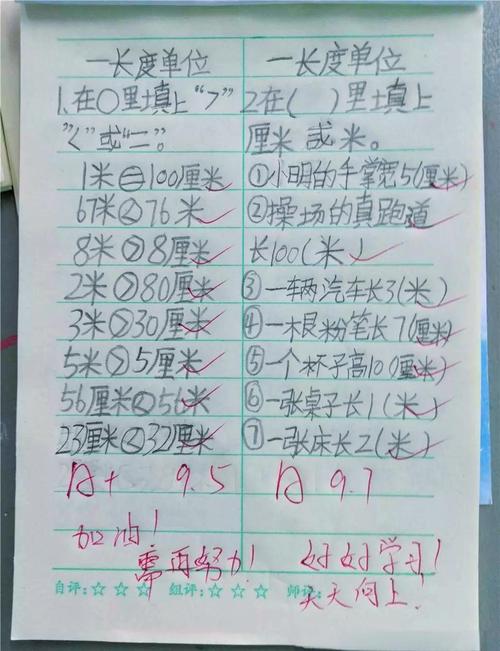 一长度单位
1.在○里填上“>”
“<”或“=”。
1米=100厘米
67米<76米
8米>8厘米
2米>80厘米
3米>30厘米
5米>5厘米
56厘米<56米
23厘米<32厘米
A+ 9.5
加油!
需再努力!
一长度单位
2在( )里填上
厘米或米。
①小明的手掌宽5(厘米)
②操场的真跑道
长100(米)
③一辆汽车长3(米)
④一根粉笔长7(厘米)
⑤一个杯子高10(厘米)
⑥一张桌子长1(米)
⑦一张床长2(米)
A 9.7
好好学习!
天天向上!
自评:☆ ☆ ☆ 组评:☆ ☆ ☆ 师评: